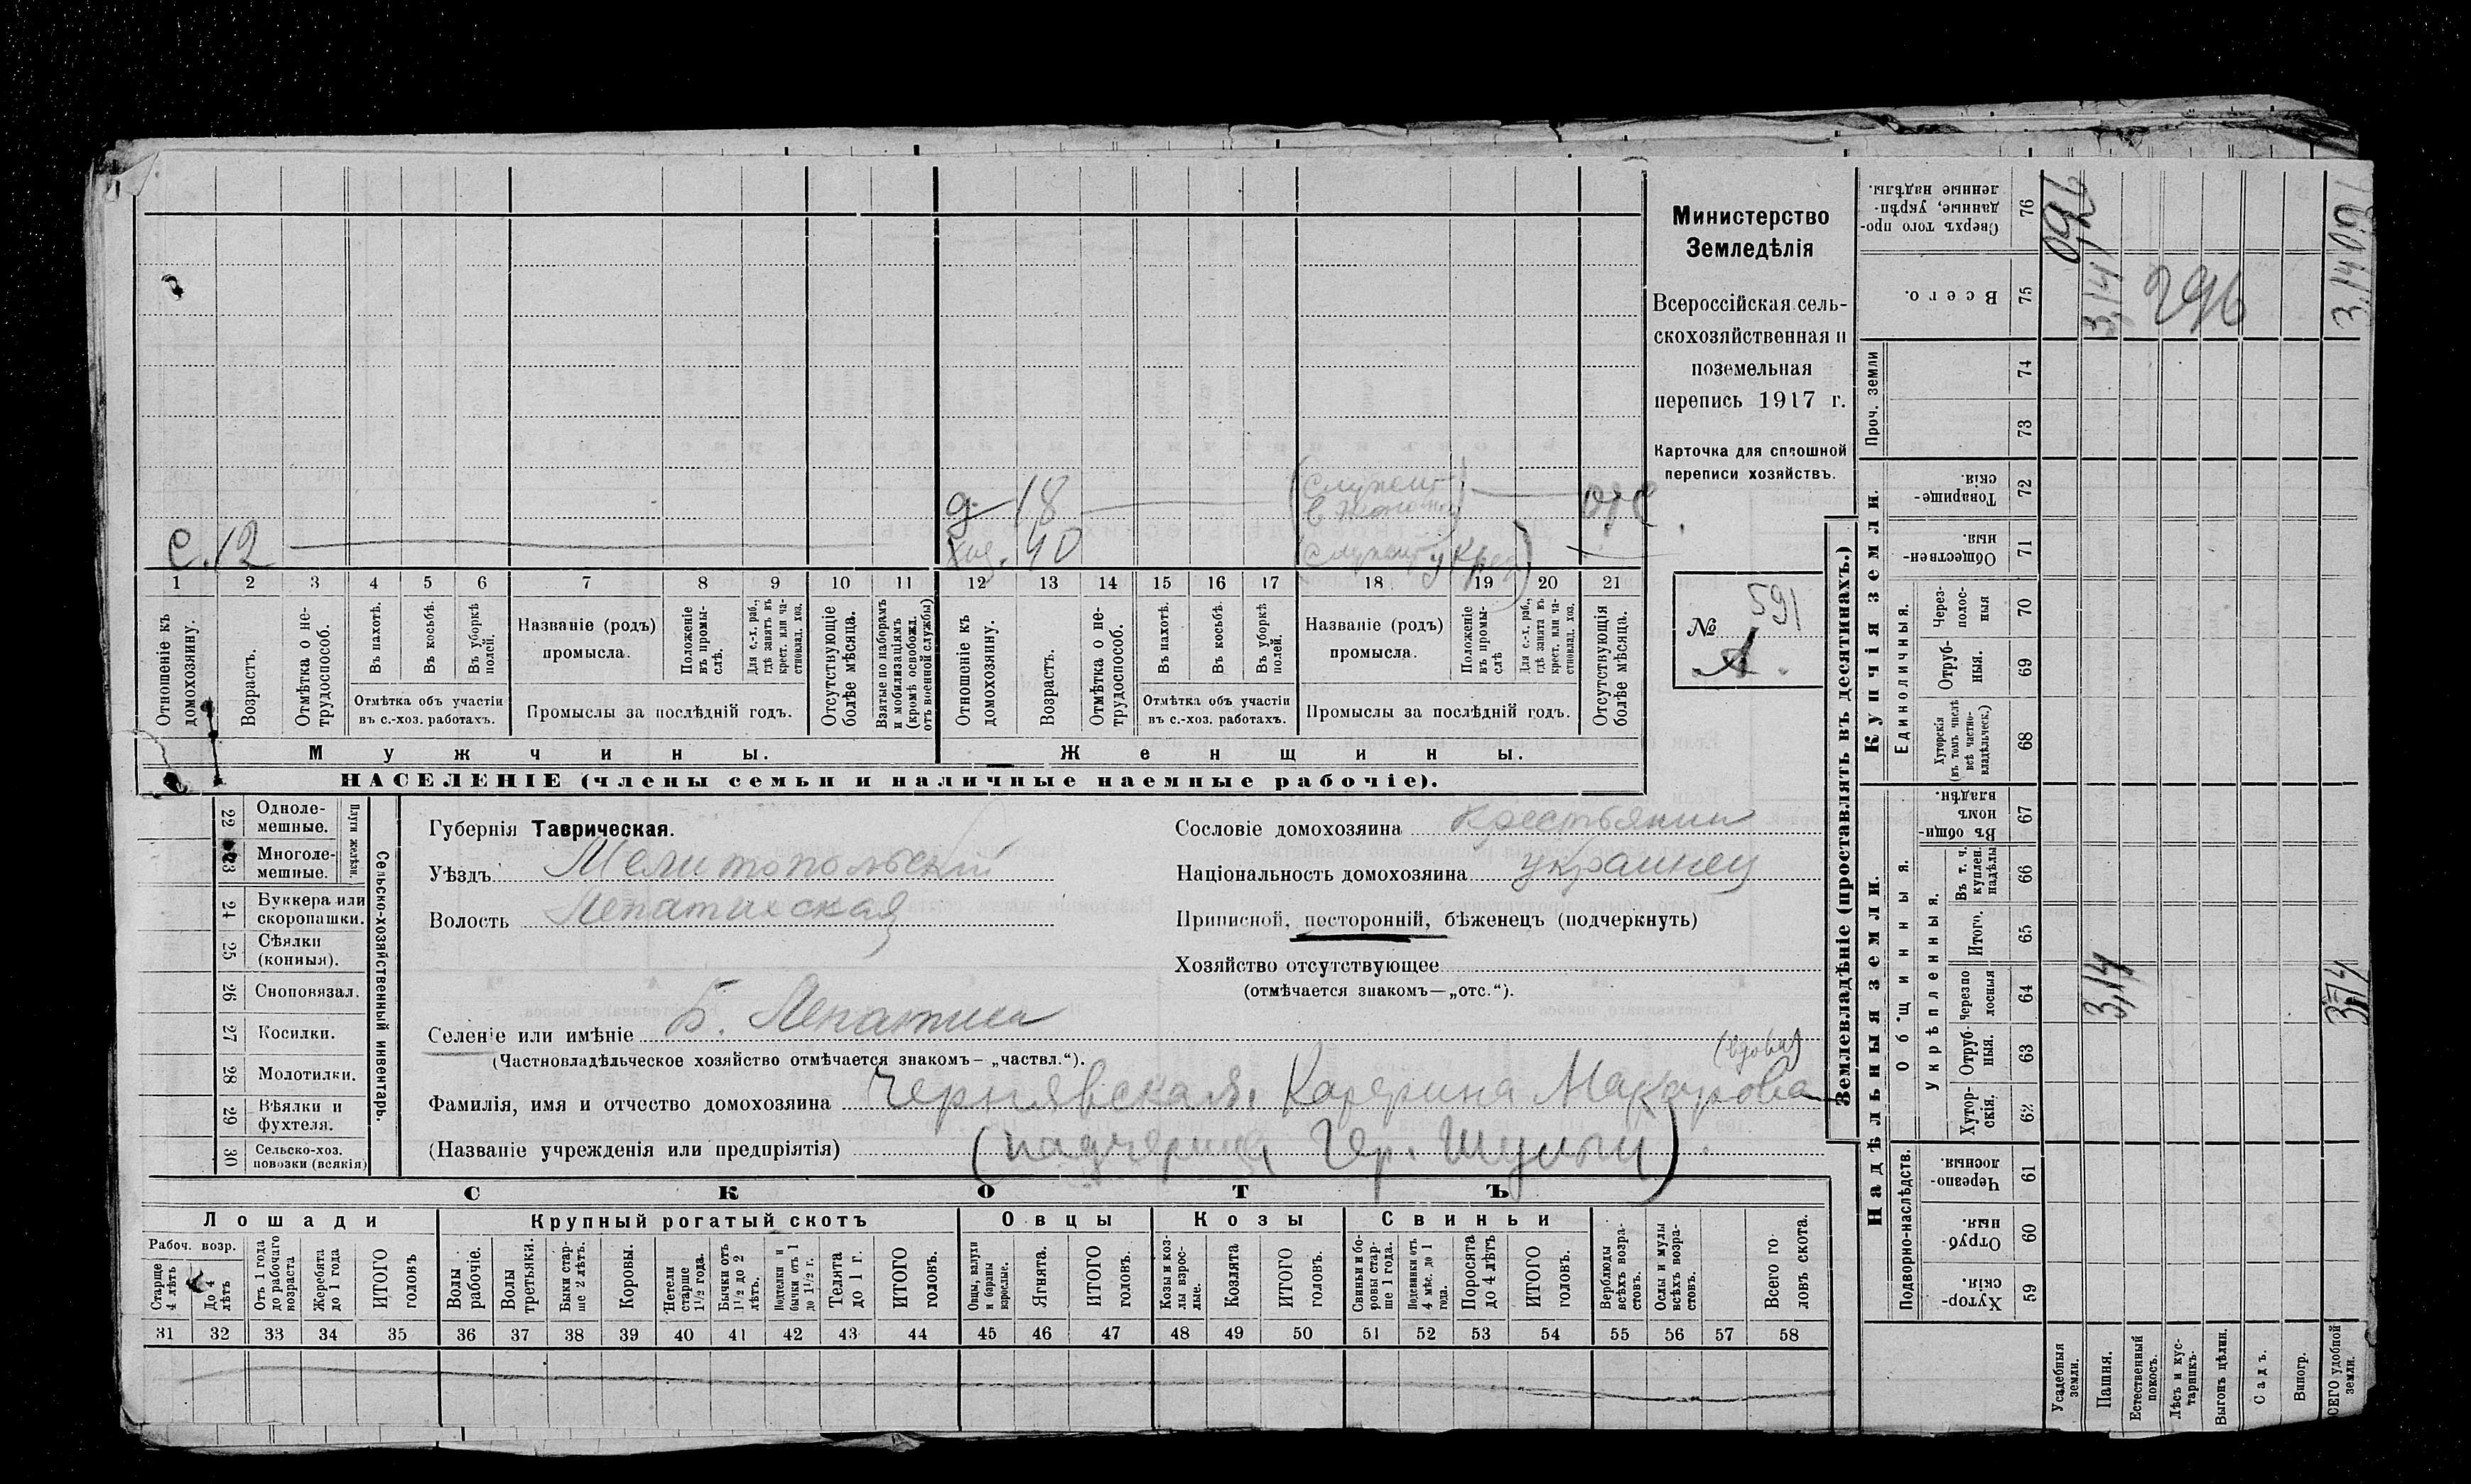 Министерство
Земледѣлія
Всероссійская сель-
скохозяйственная и
поземельная
перепись 1917 г.
Карточка для сплошной
переписи хозяйствъ.
№ 591
А.
д. 18 (Служит в ) отс.
с. 12
хоз. 40 (Служит у крес)
1 2 3 4 5 6 7 8 9 10 11 12 13 14 15 16 17 18 19 20 21
Отношеніе къ домохозяину.
Возрастъ.
Отмѣтка о не-трудоспособ.
Въ пахотѣ.
Въ косьбѣ.
Въ уборкѣ полей.
Отмѣтка объ участіи
въ с.-хоз. работахъ.
Названіе (родъ)
промысла.
Положеніе въ промы-слѣ.
Для с.-х. раб., гдѣ занятъ въ крест. или ча-стновлад. хоз.
Промыслы за послѣдній годъ.
Отсутствующіе болѣе мѣсяца.
Взятые по наборамъ и мобилизаціямъ (кромѣ освобожд. отъ военной службы)
Отношеніе къ домохозяину.
Возрастъ.
Отмѣтка о не-трудоспособ.
Въ пахотѣ.
Въ косьбѣ.
Въ уборкѣ полей.
Отмѣтка объ участіи
въ с.-хоз. работахъ.
Названіе (родъ)
промысла.
Положеніе въ промы-слѣ
Для с.-х. раб., гдѣ занята въ крест. или ча-стновлад. хоз.
Промыслы за послѣдній годъ.
Отсутствующія болѣе мѣсяца.
Мужчины.
Женщины.
НАСЕЛЕНІЕ (члены семьи и наличные наемные рабочіе).
22 Одноле-мешные.
23 Многоле-мешные.
Плуги желѣзн.
24 Буккера или скоропашки.
25 Сѣялки (конныя).
26 Сноповязал.
27 Косилки.
28 Молотилки.
29 Вѣялки и фухтеля.
30 Сельско-хоз. повозки (всякія)
Сельско-хозяйственный инвентарь.
Губернія Таврическая.
Уѣздъ Мелитопольскій
Волость Лепатихская
Селеніе или имѣніе Б. Лепатиха
(Частновладѣльческое хозяйство отмѣчается знакомъ— „частвл.“).
Сословіе домохозяина крестьянин
Національность домохозяина украинец
Приписной, посторонній, бѣженецъ (подчеркнуть)
Хозяйство отсутствующее
(отмѣчается знакомъ—„отс.“).
(вдова)
Фамилія, имя и отчество домохозяина Чернявская Катерина Макарова
(Названіе учрежденія или предпріятія) (падчерица Гер. Шульги)
СКОТЪ
Лошади
Крупный рогатый скотъ
Овцы
Козы
Свиньи
Рабоч. возр.
Старше 4 лѣтъ
До 4 лѣтъ
Отъ 1 года до рабочаго возраста
Жеребята до 1 года
ИТОГО головъ
Волы рабочіе.
Волы третьяки.
Быки стар-ше 2 лѣтъ.
Коровы.
Нетели старше 1½ года.
Бычки отъ 1½ до 2 лѣтъ.
Подтелки и бычки отъ 1 до 1½ г.
Телята до 1 г.
ИТОГО головъ.
Овцы, валухи и бараны взрослые.
Ягнята.
ИТОГО головъ.
Козы и коз-лы взрос-лые.
Козлята
ИТОГО головъ.
Свиньи и бо-ровы стар-ше 1 года.
Подсвинки отъ 4 мѣс. до 1 года.
Поросята до 4 лѣтъ
ИТОГО головъ.
Верблюды всѣхъ возра-стовъ.
Ослы и мулы всѣхъ возра-стовъ.
Всего го-ловъ скота.
31 32 33 34 35 36 37 38 39 40 41 42 43 44 45 46 47 48 49 50 51 52 53 54 55 56 57 58
Землевладѣніе (проставлять въ десятинахъ.)
Купчія земли.
Надѣльныя земли.
Сверхъ того про-данные, укрѣп-ленные надѣлы. 76
Всего. 75
Проч. земли 74 73
Товарище-скія 72
Обществен-ныя. 71
Единоличныя.
Через-полос-ныя 70
Отруб-ныя. 69
Хуторскія (въ томъ числѣ всѣ частно-владѣльческ.) 68
Общинныя.
Въ общи-номъ владѣн. 67
Укрѣпленныя.
Въ т. ч. куплен. надѣлы 66
Итого. 65
Черезпо лосныя 64
Отруб-ныя. 63
Хутор-скія. 62
Подворно-наслѣдств.
Черезпо-лосныя. 61
Отруб-ныя. 60
Хутор-скія. 59
Усадебныя земли.
Пашня.
Естественный покосъ.
Лѣсъ и кус-тарникъ.
Выгонъ цѣлин.
Садъ.
Виногр.
ВСЕГО удобной земли.
0,96
3,14
296
3.14 0.96
3,14
3,14